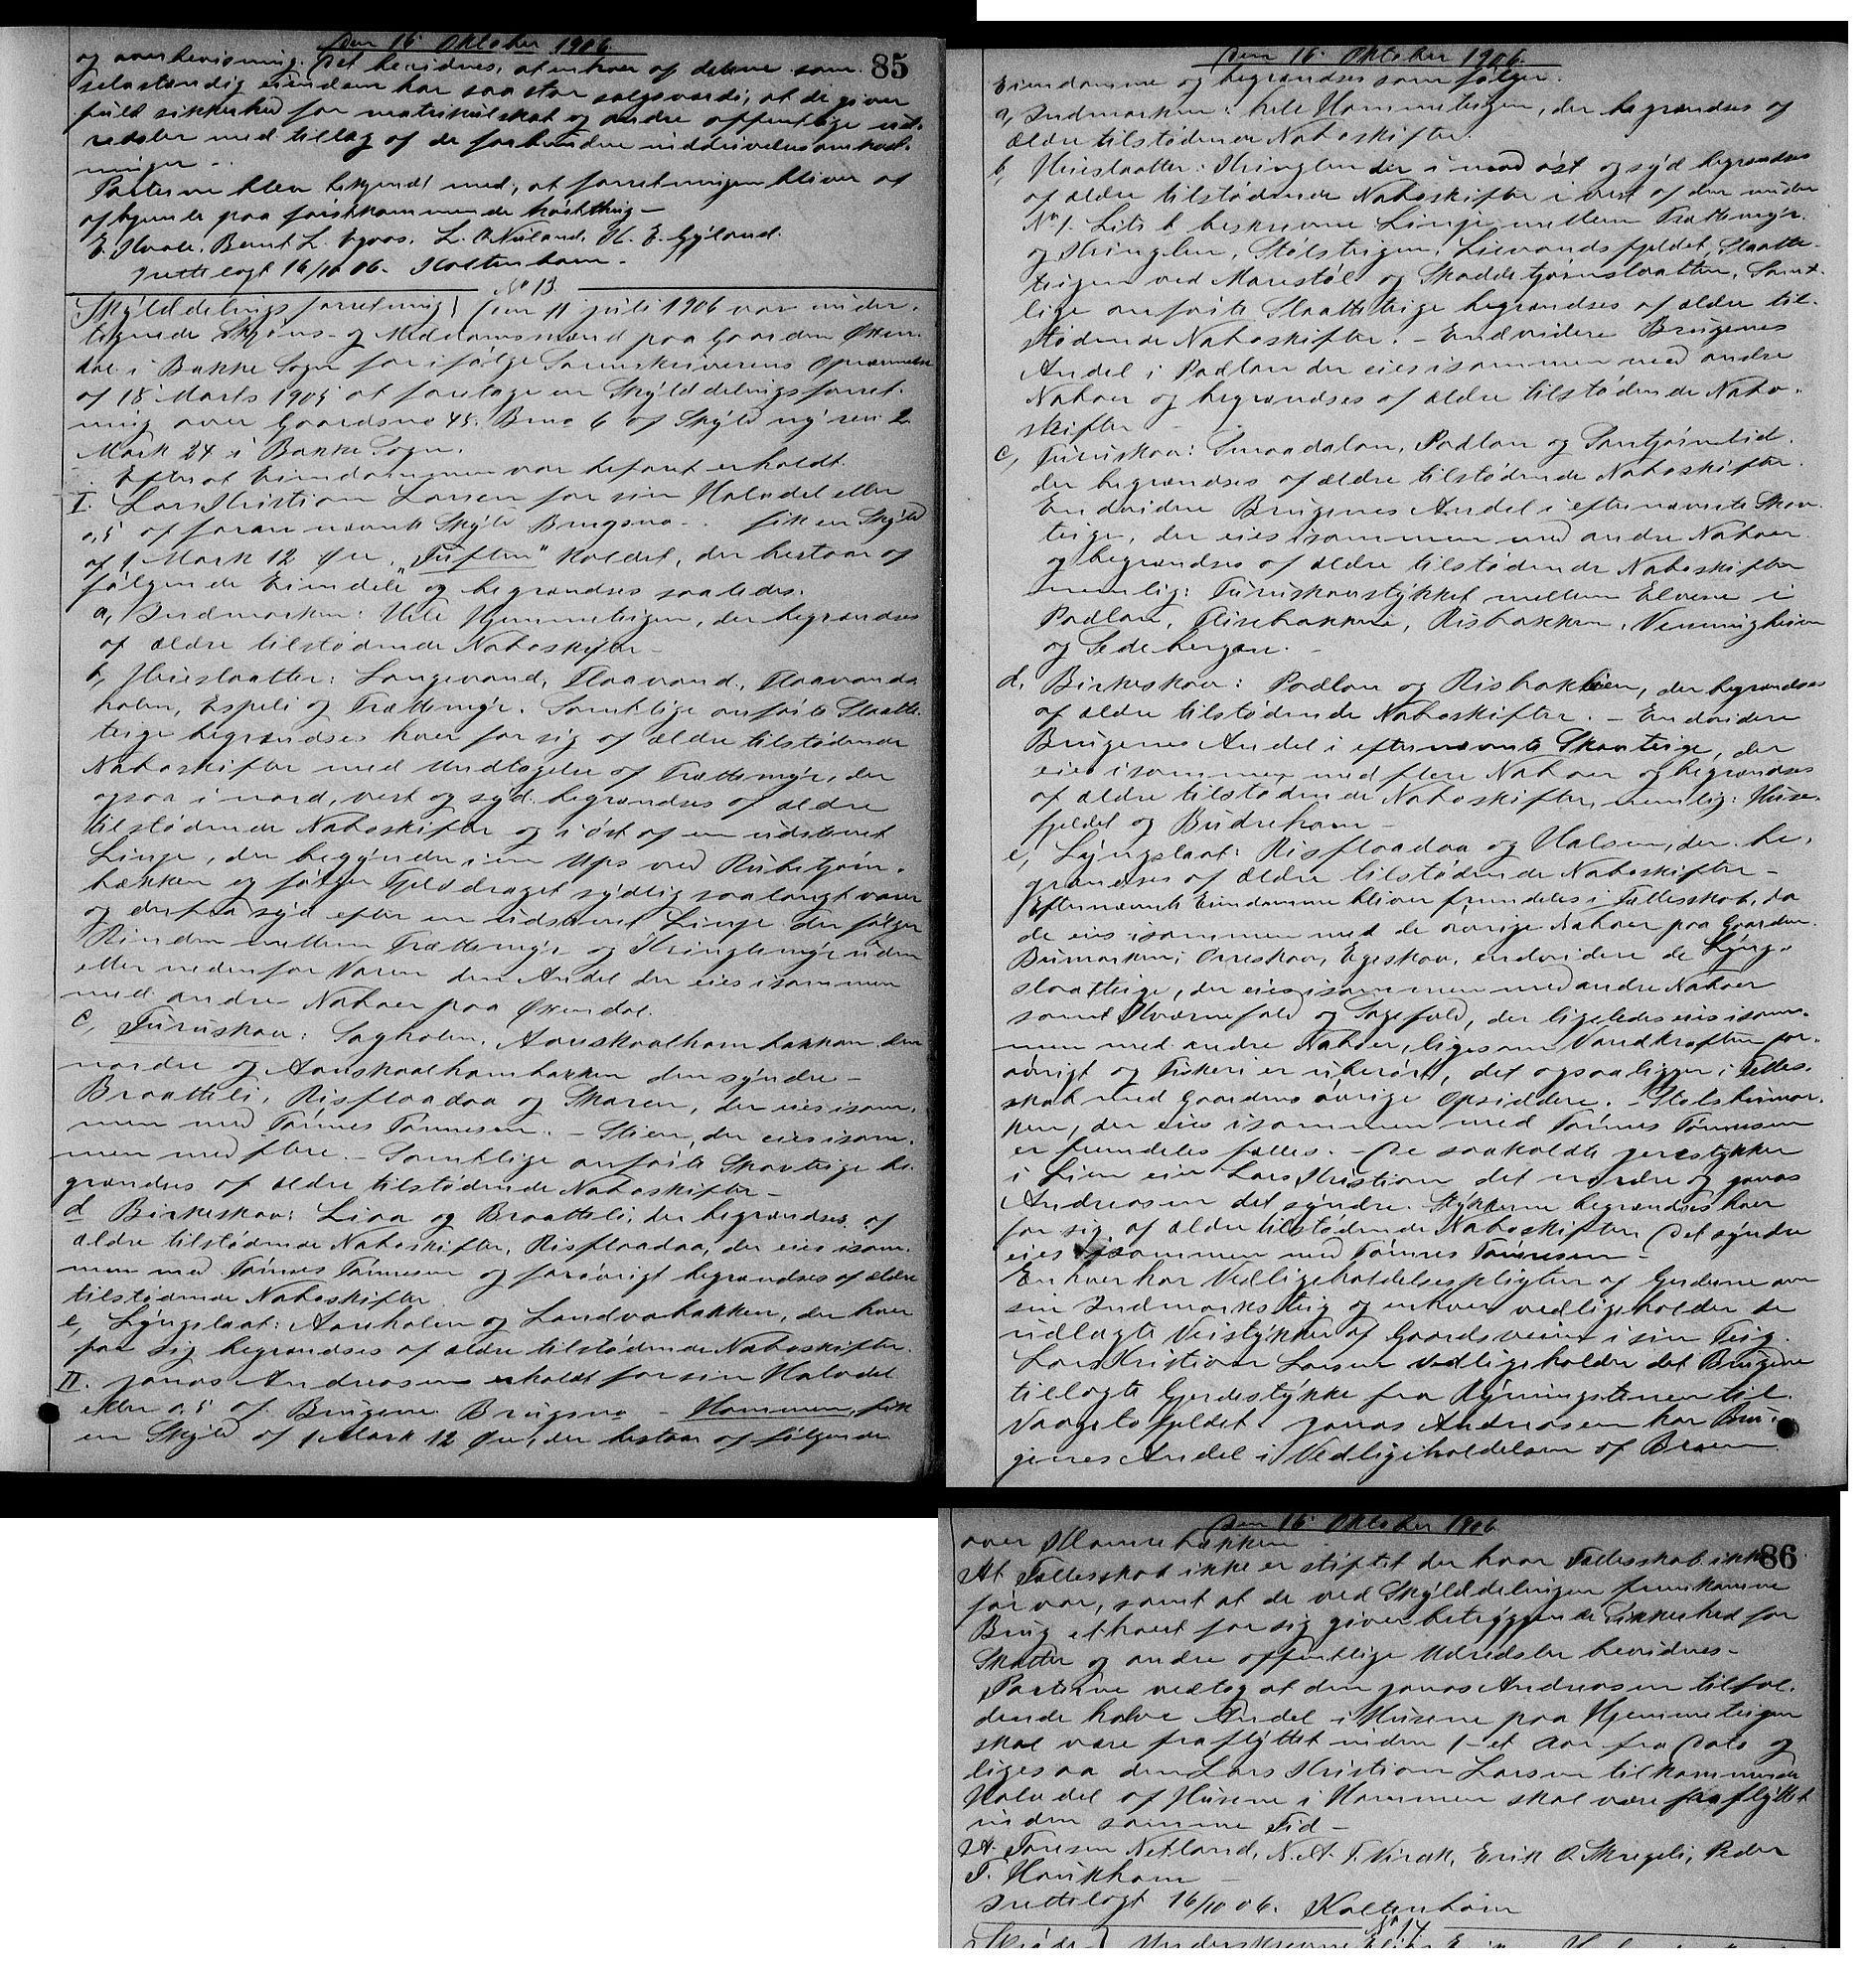 Den 16. Oktober 1906.
85
og overbevisning. Det bevidnes, at enhver af delene som
selvstændig eiendom har saa stor salgsværdi, at de giver
fuld sikkerhed for matrikulskat og andre offentlige ud-
redsler med tillæg af de forbundne inddrivelsesomkost-
ninger -.
Parterne blev bekjendt med, at forretningen bliver at
afhjemle paa førstkommende høstthing -
E. Hvale. Bernt L. L. O. Nuland. H. E. Egeland.
Indtelagt 16/10 06. Koltenborn.
No 13.
Skylddelingsforretning } Den 11 juli 1906 var under-
tegnede Skjøns- og Meddomsmænd paa Gaarden Øken-
dal i Bakke Sogn for ifølge Sorenskriverens Opnævnelse
af 18 Marts 1905 at foretage en Skylddelingsforret-
ning over Gaardsno 45. Bruno 6 af Skyld ny rev. 2
Mark 24 i Bakke Sogn.
Efter at Eiendommen var befaret erholdt:
I. Lars Kristian Larsen for sin Halvdel eller
0,5 af foran nævnte Skyld Brugsno - . fik en Skyld
af 1 Mark 12 Øre, "Tuften" kaldet, der bestaar af
følgende Eiendele og begrændses saaledes:
a, Indmarken: Hele Hjemmeteigen, der begrændses
af ældre tilstødende Naboskifter -
b, Heieslaatter: Langevand, Flaavand, Flaavands
holm, Espeli og Trættemyr. Samtlige anførte Slaatte-
teige begrændses hver for sig af ældre tilstødende
Naboskifter med Undtagelse af Trættemyr, der
ogsaa i nord, vest og syd begrændses af ældre
tilstødende Naboskifter og i øst af en udstævnet
Linje, der begynder i en Ups ved Rubetjørn-
bækken og følger Fjelddraget sydlig saa langt varer
og derfra syd efter en udstævnet Linje der følger
Rinden mellem Trættemyr og Kringlemyr uden
eller nedenfor Varen den Andel der eies isammen
med andre Naboer paa Økendal.
c, Furuskov: Sagholm, Aanskaalhambakken den
nordre og Aanskaalhambakken den syndre -
Braatteli, Risflaadaa og Skaren, der eies isam-
men med Tønnes Tønnesen. - Stien, der eies isam-
men med flere. - Samtlige anførte Skovteige be-
grændses af ældre tilstødende Naboskifter -
d Birkeskov: Liaa og Braatteli, der begrændses af
ældre tilstødende Naboskifter, Risflaadaa, der eies isam-
men med Tønnes Tønnesen og forøvrigt begrændses af ældre
tilstødende Naboskifter
e, Lyngslaat: Aaneholm og Landvabakken, der hver
for sig begrændses af ældre tilstødende Naboskifter.
II. Jonas Andreasen erholdt for sin Halvdel
eller 0,5 af Brugene Brugsno - Hammen, fik
en Skyld af 1 Mark 12 Øre, der bestaar af følgende
Den 16. Oktober 1906.
Eiendomme og begrændses som følger:
a, Indmarken: hele Hammeteigen, der begrændses af
ældre tilstødende Naboskifter.
b, Heieslaatter: Kringlen der i nord øst og syd begrændses
af ældre tilstødende Naboskifter i vest af den under
No 1. Litr b beskrevne Linje mellem Trættemyr
og Kringlen, Stølsteigen, Lievandsfjeldet, Slaatte-
teigen ved Marestøl og Skaddetjørnslaatten, Samt-
lige anførte Slaatteteige begrændses af ældre til-
stødende Naboskifter. - Endvidere Brugenes
Andel i Podlan der eies isammen med andre
Naboer og begrændses af ældre tilstødende Nabo-
skifter -
c, Furuskov: Smaadalan, Podlan og Svartjørnlid,
der begrændses af ældre tilstødende Naboskifter.
Endvidere Brugenes Andel i efternævnte Skov-
teige, der eies isammen med andre Naboer
og begrændses af ældre tilstødende Naboskifter
nemlig: Furuskovstykket mellem Elvene i
Podlan, Flisebakken, Risbakken, Venningheien
og Sedebergan. -
d, Birkeskov: Podlan og Risbakken, der begrændses
af ældre tilstødende Naboskifter. - Endvidere
Brugenes Andel i efternævnte Skovteige, der
eies isammen med flere Naboer og begrændses
af ældre tilstødende Naboskifter, nemlig: Huse-
fjeldet og Budreham -
e, Lyngslaat: Risflaadaa og Halsen, der be-
grændses af ældre tilstødende Naboskifter -
Efternævnte Eiendomme bliver fremdeles i Fællesskab, da
de eies isammen med de øvrige Naboer paa Gaarden.
Bumarken, Oreskov, Egeskov, endvidere de Lyng-
slaatteige, der eies isammen med andre Naboer
samt Kværnefald og Sagefald, der ligeledes eies isam-
men med andre Naboer, ligesom Vandkraften for-
øvrigt og Fiskeri er uberørt, det ogsaa ligger i Fælles-
skab med Gaardens øvrige Opsiddere. - Stølsbumar-
ken, der eies isammen med Tønnes Tønnesen
er fremdeles fælles. - De saakaldte jerestykker
i Lien eier Lars Kristian det nordre og Jonas
Andreasen det syndre. Stykkerne begrændses hver
for sig af ældre tilstødende Naboskifter. Det syndre
eies isammen med Tønnes Tønnesen -
Enhver har Vedligeholdelsespligten af Gjerderne over
sin Indmarksteig og enhver vedligeholder de
udlagte Veistykker af Gaardsveien i sin Teig.
Lars Kristian Larsen vedligeholder det Brugene
tillagte Gjerdestykke fra Rymingstenen til
Vaagslofjeldet. Jonas Andreasen har Bru-
genes Andel i Vedligeholdelsen af Broen
Den 16. Oktober 1906.
86
over Hammebækken
At Fællesskab ikke er stiftet der hvor Fællesskab ikke
før var, samt at de ved Skylddelingen fremkomne
Brug ethvert for sig giver betryggende Sikkerhed for
Skatter og andre offentlige Udredsler bevidnes -
Parterne vedtog at den Jonas Andreasen tilfal-
dende halve Andel i Husene paa Hjemmeteigen
skal være fraflyttet inden 1 - et Aar fra Dato og
ligesaa den Lars Kristian Larsen tilkommende
Halvdel af Husene i Hammen skal være fraflyttet
inden samme Tid -
A. Torsen Netland, N. A. T. Virak, Erik O. Skregeli, Peder
T. Haukham -
Indtelagt 16/10 06. Koltenborn
No 14.
Skjøde } Underskrevne